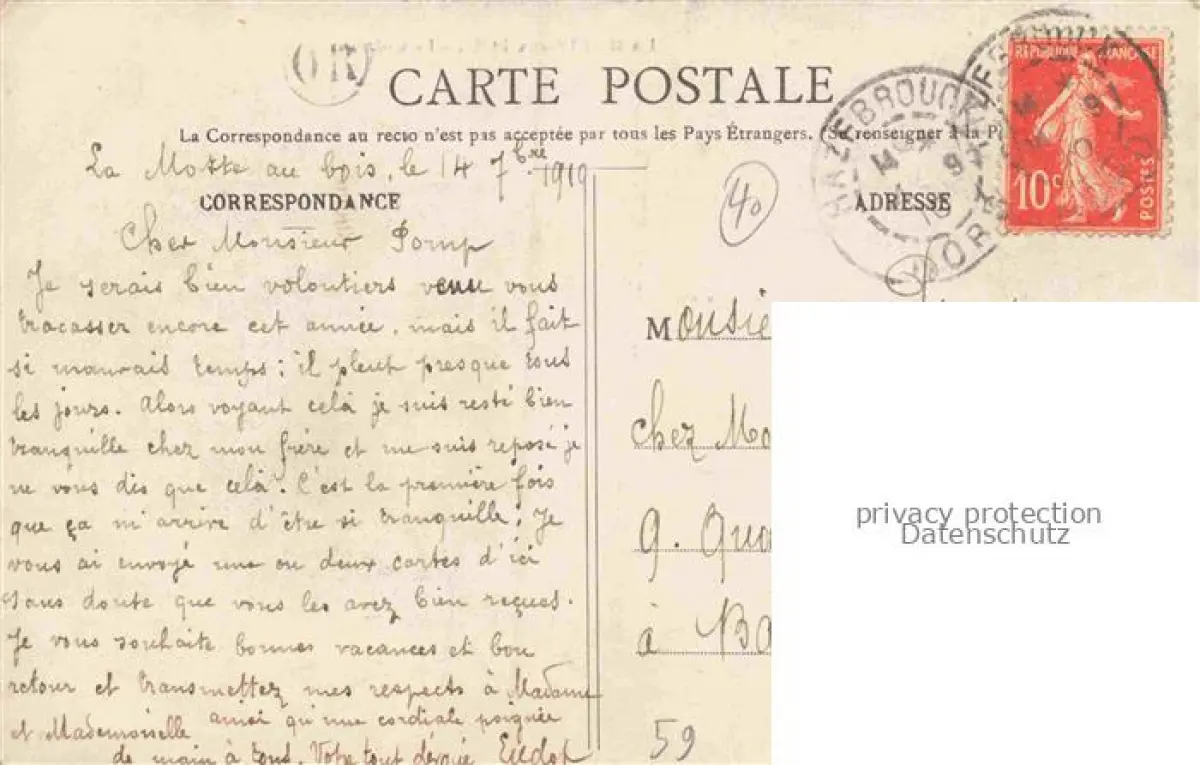 OR
CARTE POSTALE
La Correspondance au recto n'est pas acceptée par tous les Pays Étrangers. (Se renseigner à la P
La Motte au bois, le 14 7bre 1919
CORRESPONDANCE
ADRESSE
40
HAZEBROUCK
NORD
RÉPUBLIQUE FRANÇAISE
10c
POSTES
Cher Monsieur
Je serais bien volontiers venu vous
tracasser encore cet année, mais il fait
si mauvais temps; il pleut presque tous
les jours. Alors voyant celà je suis resté bien
tranquille chez mon frère et me suis reposé je
ne vous dis que celà. C'est la première fois
que ça m'arrive d'être si tranquille; Je
vous ai envoyé une ou deux cartes d'ici
sans doute que vous les avez bien reçues.
Je vous souhaite bonnes vacances et bon
retour et transmettez mes respects à Madame
et Mademoiselle ainsi qu'une cordiale poignée
de main à tous. Votre tout dévoué
Monsie
chez Mo
9. Qua
à Bo
59
privacy protection
Datenschutz